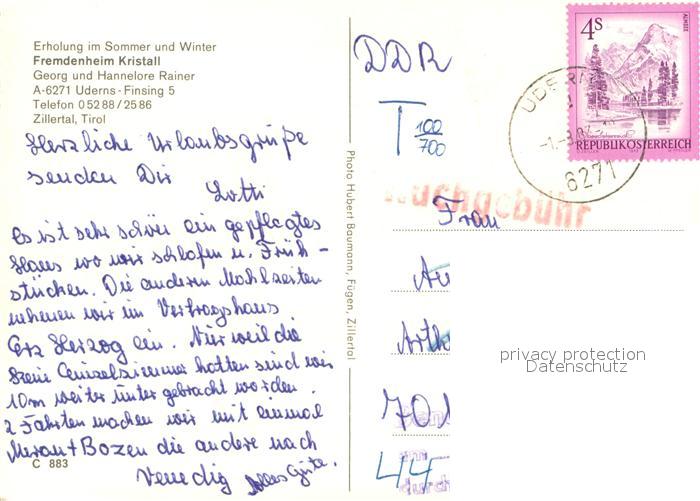 Erholung im Sommer und Winter
Fremdenheim Kristall
Georg und Hannelore Rainer
A-6271 Uderns-Finsing 5
Telefon 05288/2586
Zillertal, Tirol
Herzliche Urlaubsgrüße
senden Dir
Lotti
Es ist sehr schön ein gepflegtes
Haus wo wir schlafen u. Früh-
stücken. Die anderen Mahlzeiten
nehmen wir im Vertragshaus
Erz Herzog ein. Nur weil die
keine Einzelzimmer hatten sind wir
10m weiter unter gebracht worden.
2 Fahrten machen wir mit einmal
Meran + Bozen die andere nach
Venedig Alles Gute.
C 883
Photo Hubert Baumann, Fügen, Zillertal
DDR
T 100
700
4S
ALMSEE
REPUBLIK ÖSTERREICH
6271
Nachgebühr
Frau
701
44
durch
privacy protection
Datenschutz